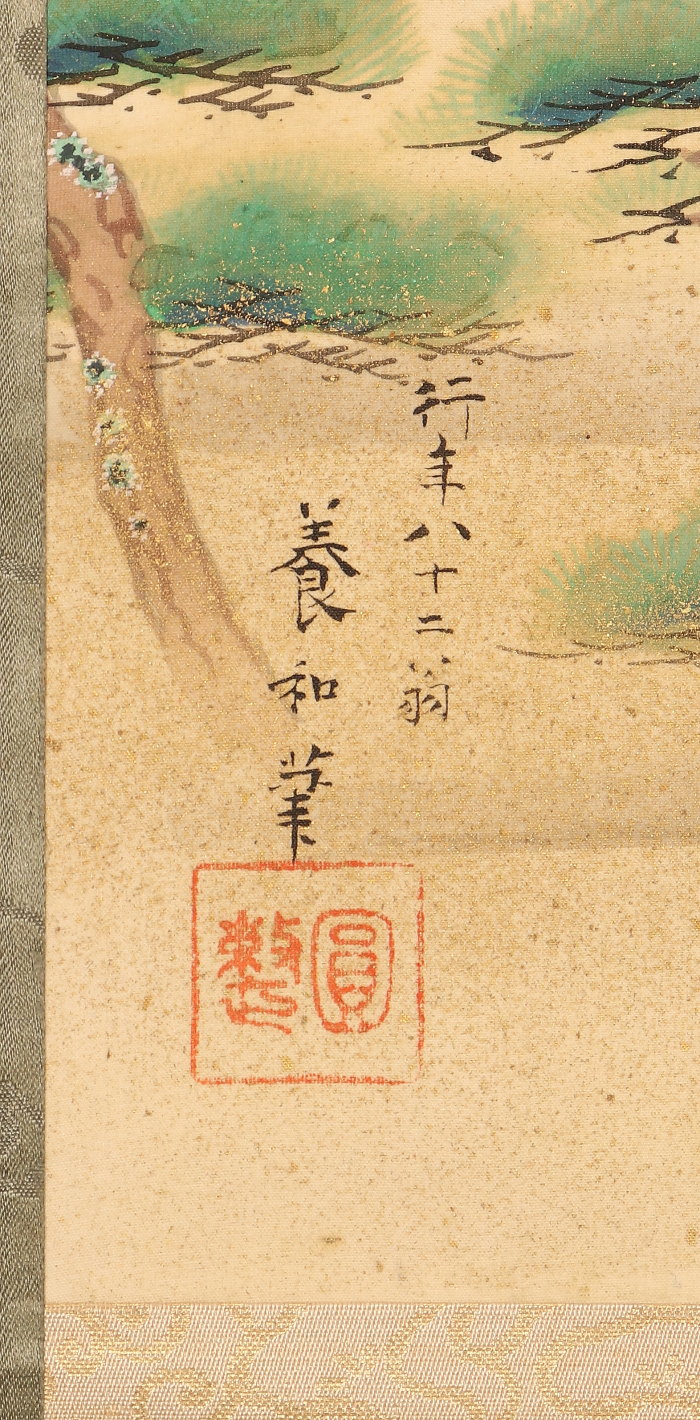 行年八十二翁
養和筆